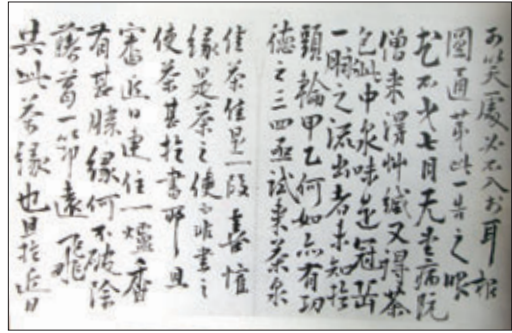 可笑處必不入於耳根
圓通第此一
七月无恙病阮
僧來得艸緘又得茶
包此中泉味是冠岳
一脉之流出者未知於
頭輪甲乙何如亦有功
德之三四亟試來茶泉
佳茶佳是一段喜懽
緣是茶之使而非書之
使茶甚於書耶且
審近日連住一爐香
有甚勝緣何不破除
藤葛一笻遠飛
共此茶緣也且於近日